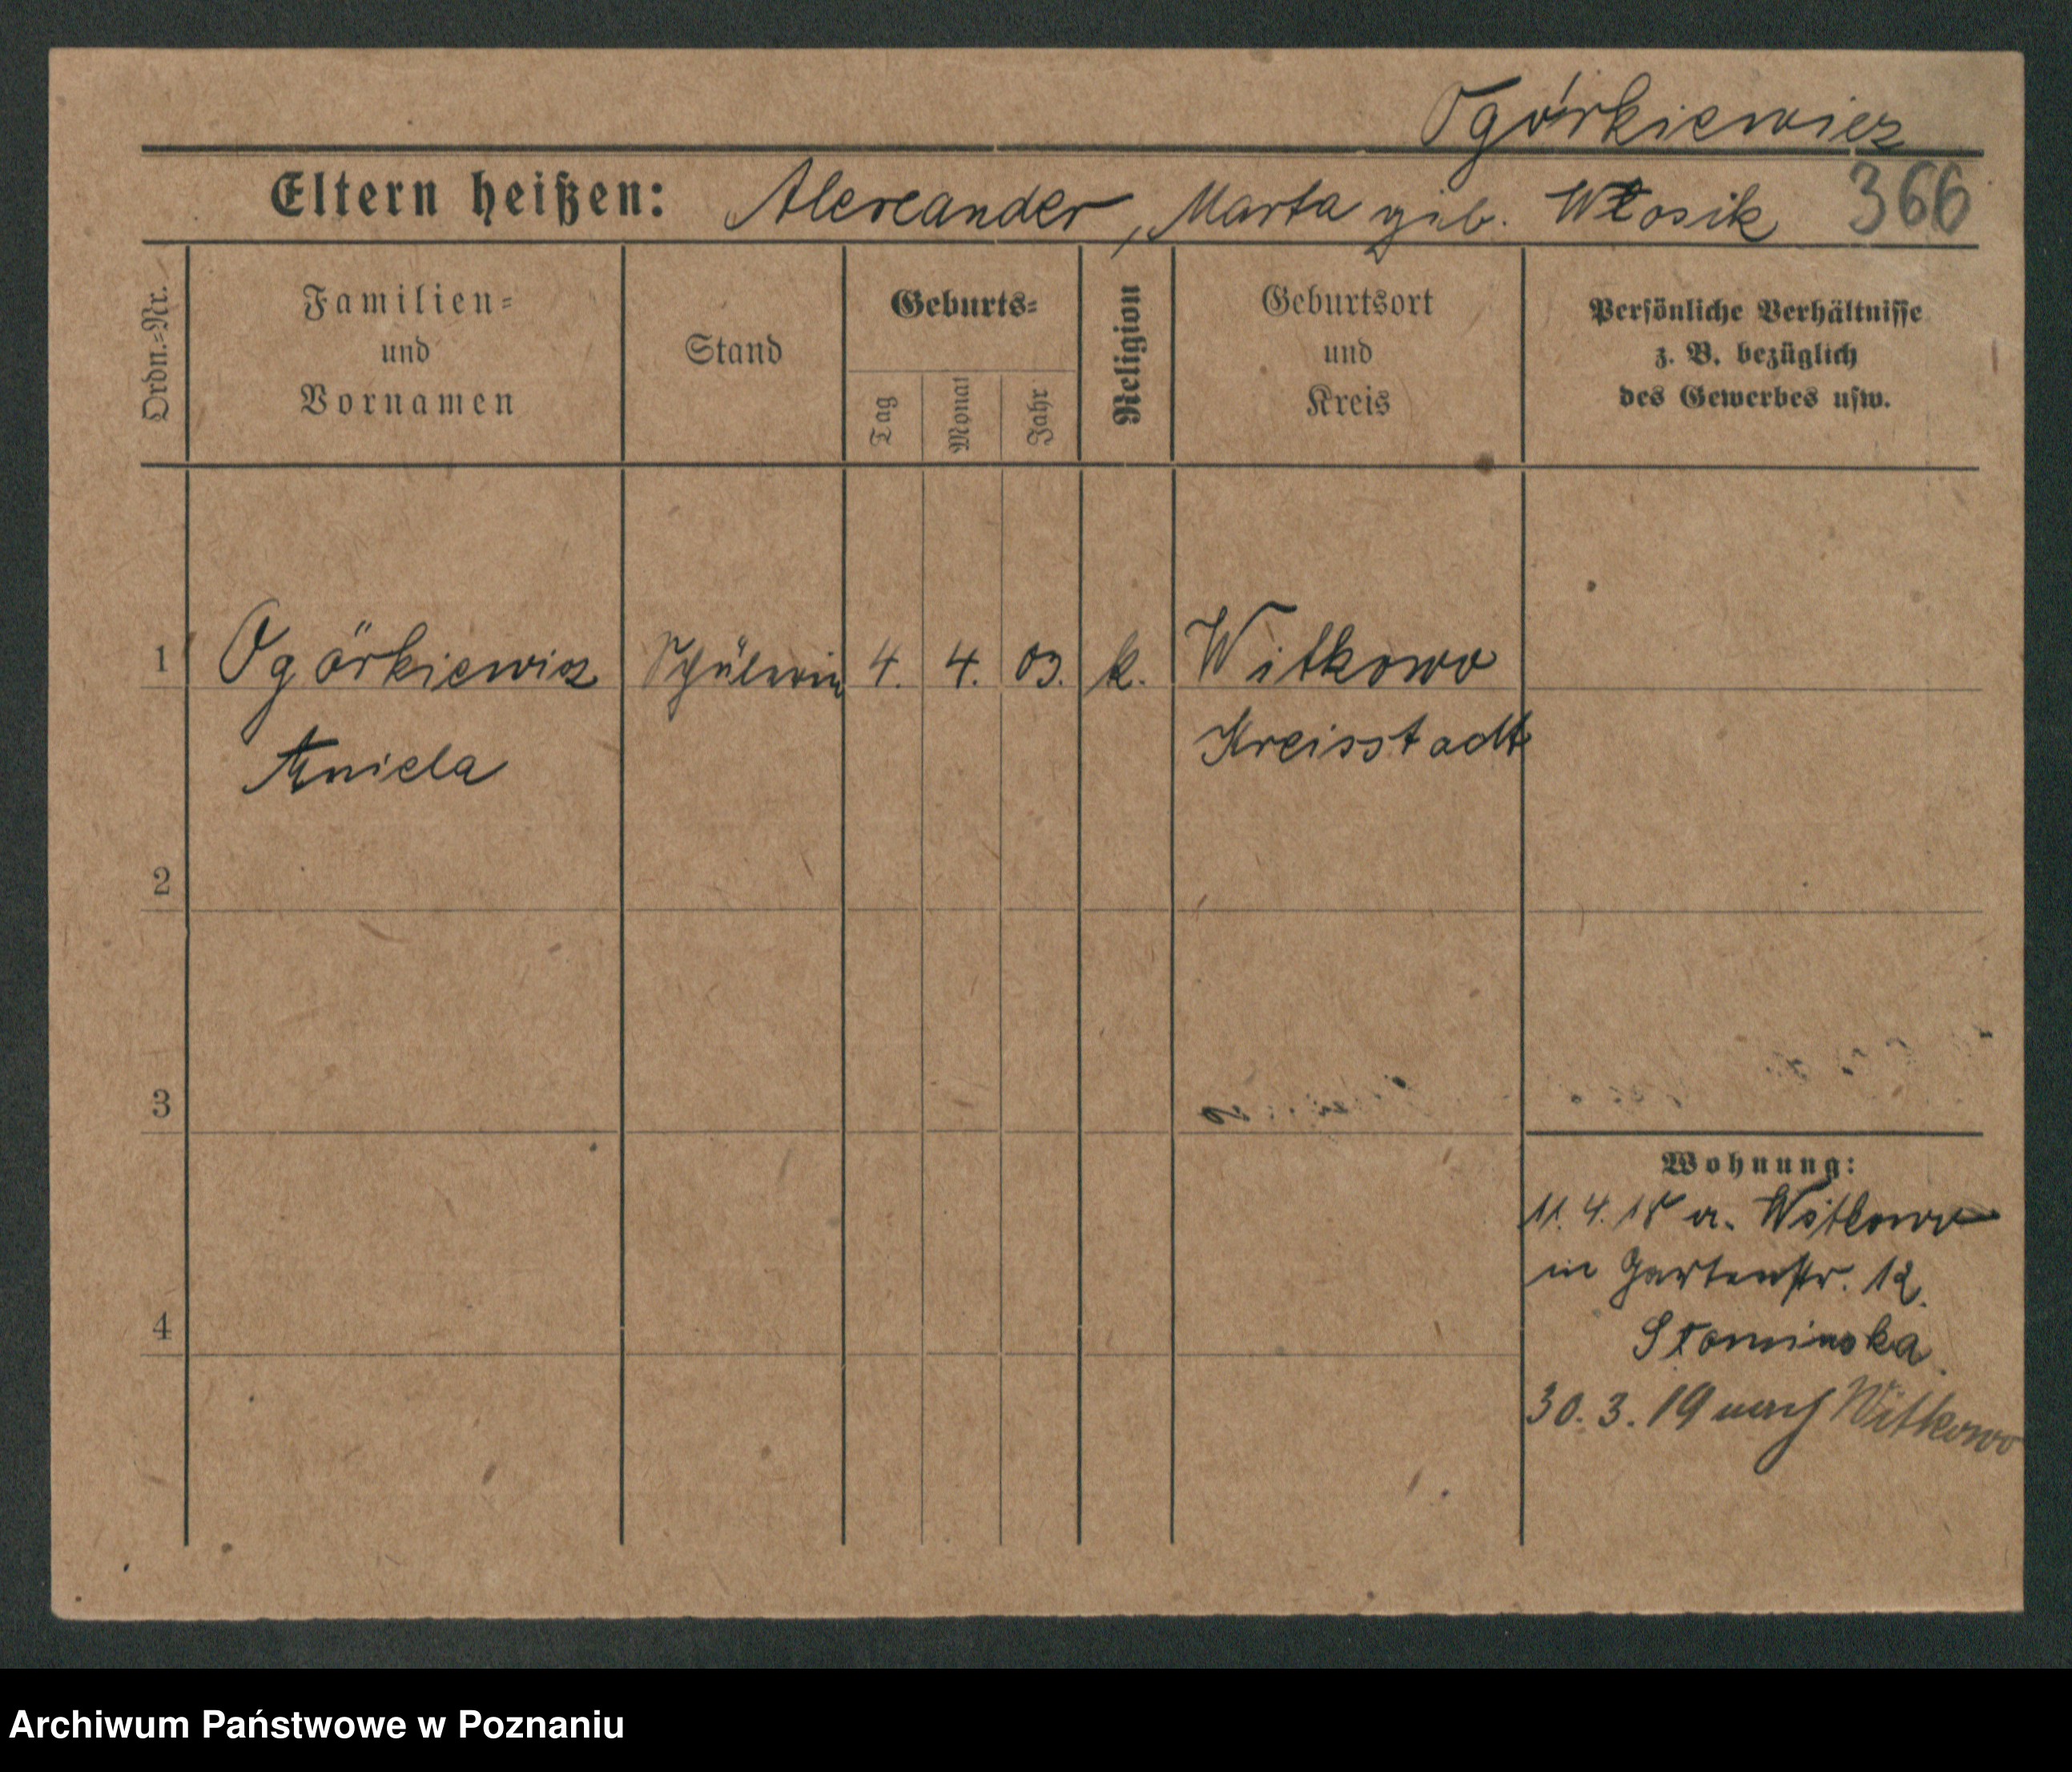 Ogórkiewicz
Eltern heißen: Alexander, Marta geb. Włosik 366
Ordn.-Nr.
Familien-
und
Vornamen
Stand
Geburts-
Tag
Monat
Jahr
Religion
Geburtsort
und
Kreis
Persönliche Verhältnisse
z. B. bezüglich
des Gewerbes usw.
1 Ogórkiewicz Schülerin 4. 4. 03. k. Witkowo
Aniela Kreisstadt
2
3
4
Wohnung:
11. 4. 18 a. Witkowo
in Gartenstr. 12.
Słominska
30. 3. 19 nach Witkowo
Archiwum Państwowe w Poznaniu